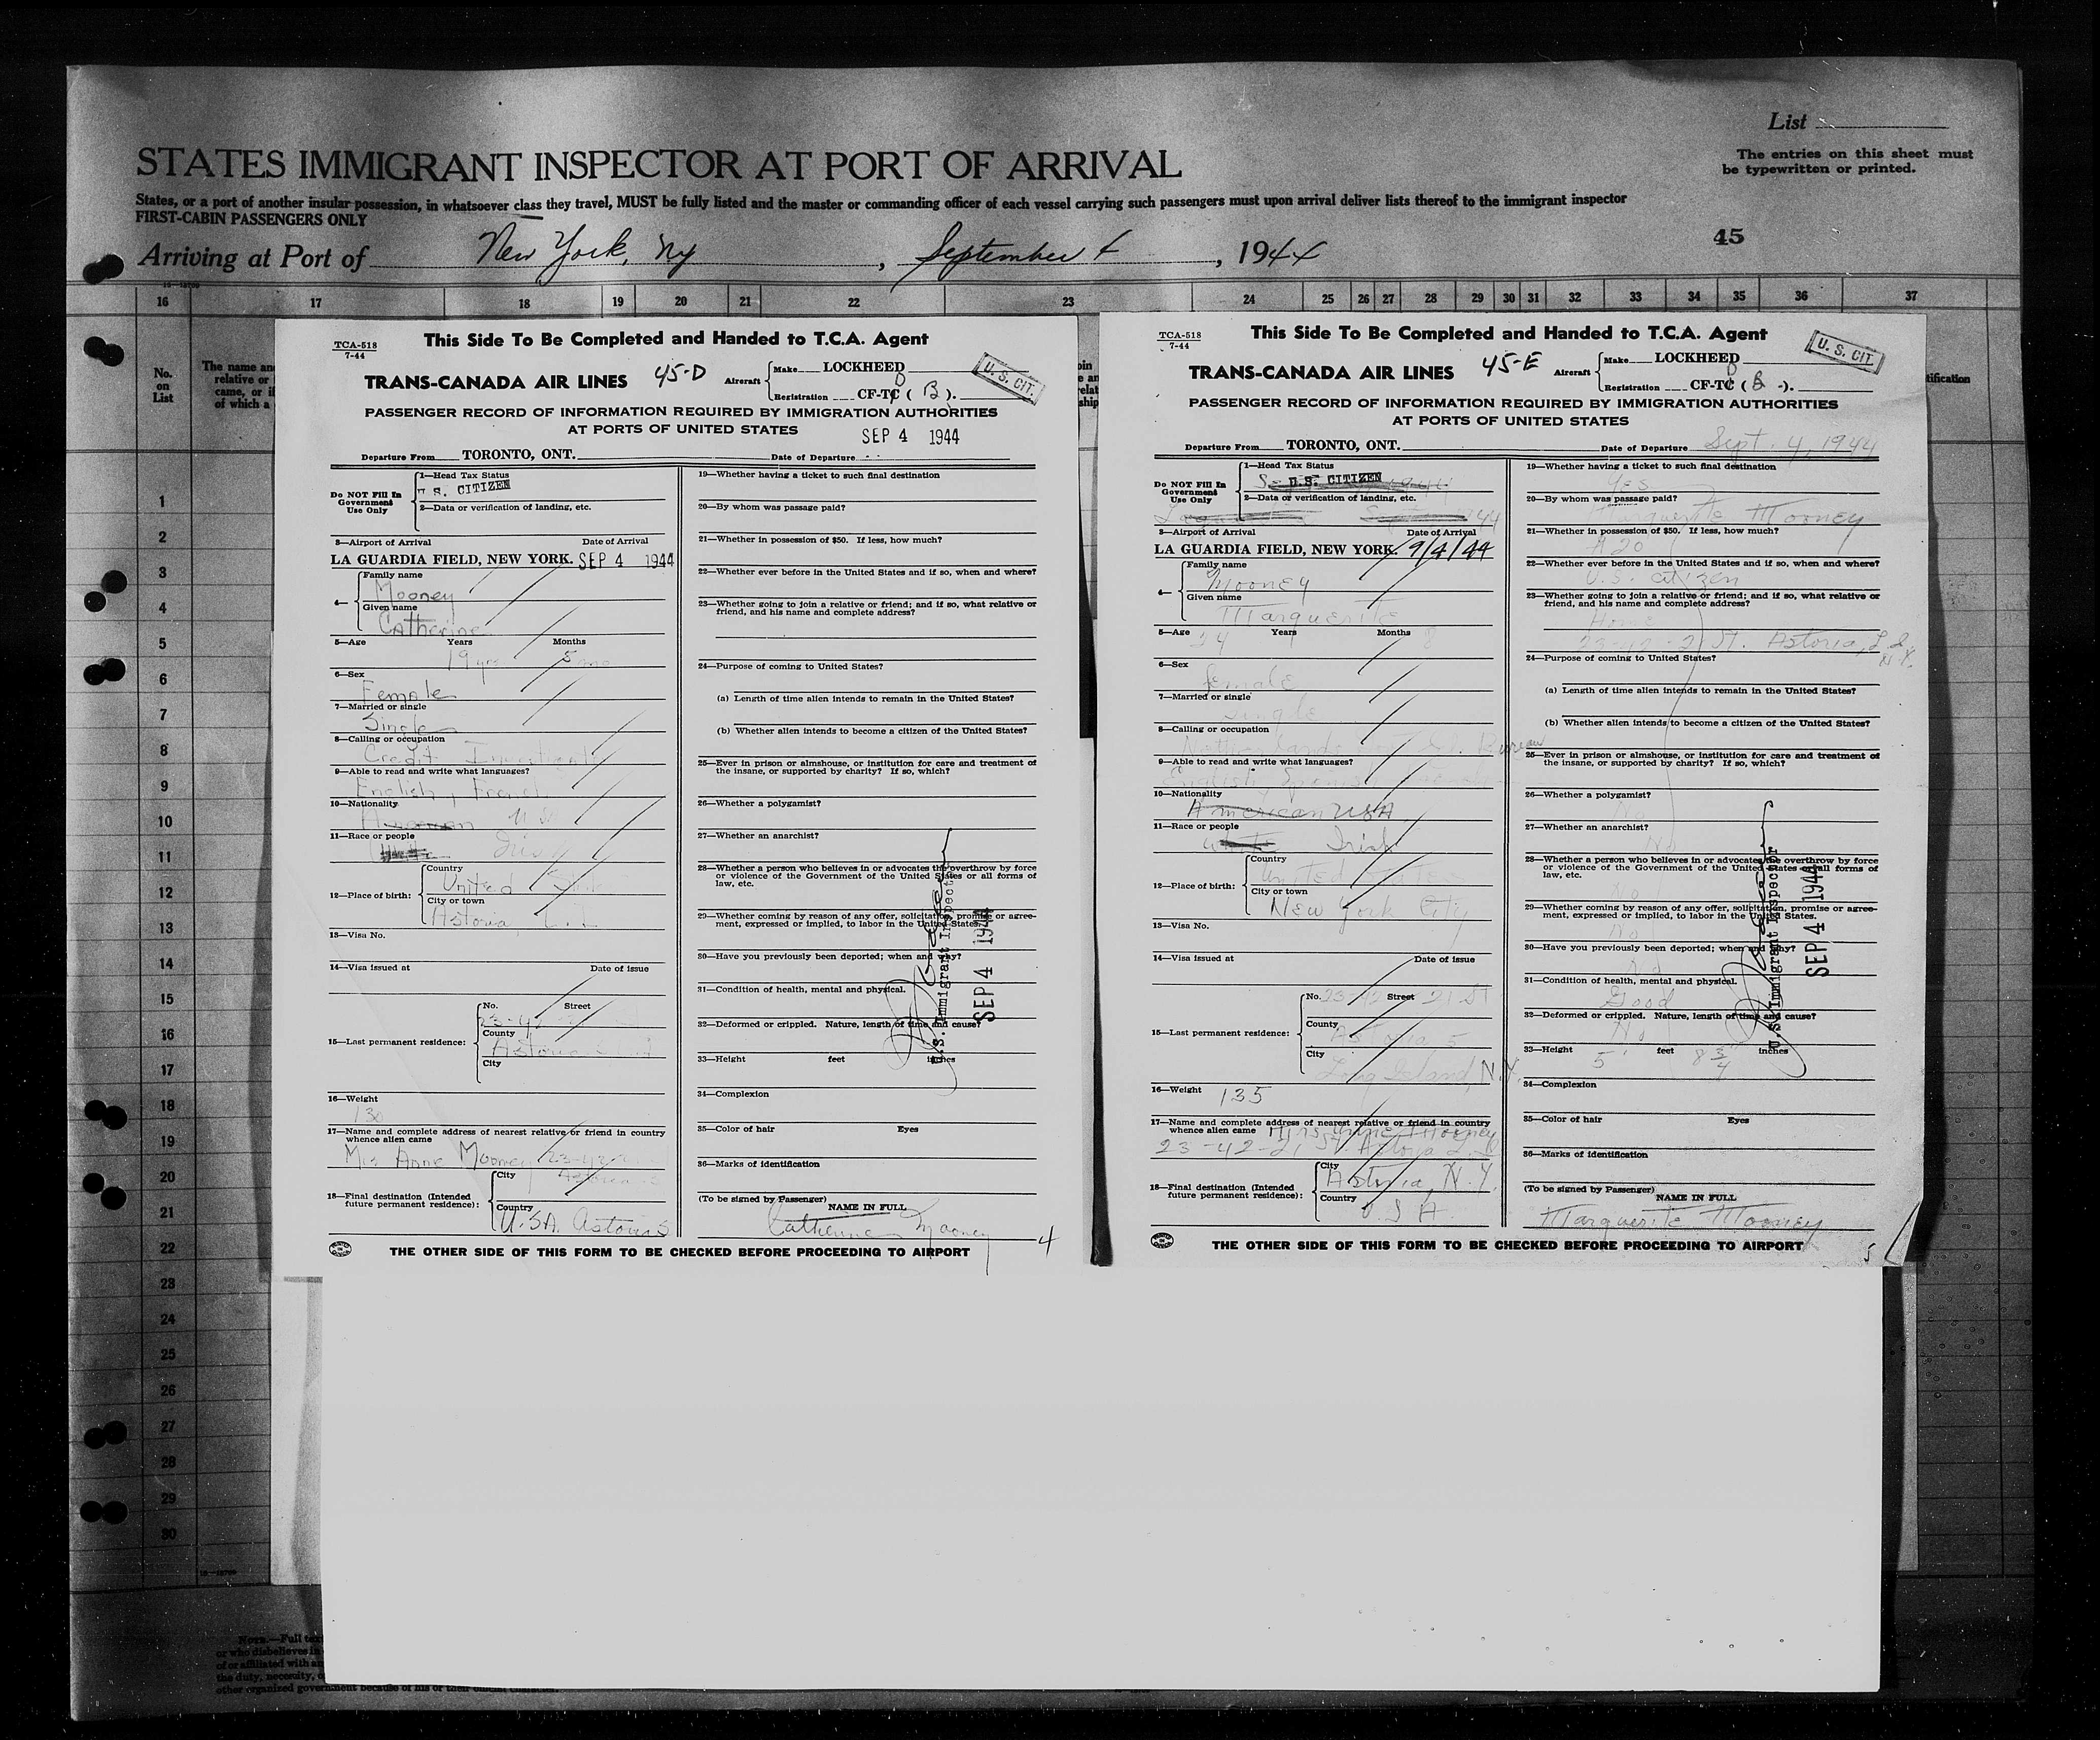 List
STATES IMMIGRANT INSPECTOR AT PORT OF ARRIVAL
The entries on this sheet must
be typewritten or printed.
States, or a port of another insular possession, in whatsoever class they travel, MUST be fully listed and the master or commanding officer of each vessel carrying such passengers must upon arrival deliver lists thereof to the immigrant inspector
FIRST-CABIN PASSENGERS ONLY
45
Arriving at Port of New York, NY, September 4, 1944
16 17 18 19 20 21 22 23 24 25 26 27 28 29 30 31 32 33 34 35 36 37
No.
on
List
The name and
relative or
came, or if
of which a
1
2
3
4
5
6
7
8
9
10
11
12
13
14
15
16
17
18
19
20
21
22
23
24
25
26
27
28
29
30
TCA-518
7-44
This Side To Be Completed and Handed to T.C.A. Agent
TRANS-CANADA AIR LINES 45-D
Aircraft Make LOCKHEED
Registration CF-TC ( B ).
U. S. CIT.
PASSENGER RECORD OF INFORMATION REQUIRED BY IMMIGRATION AUTHORITIES
AT PORTS OF UNITED STATES
SEP 4 1944
Departure From TORONTO, ONT. Date of Departure
Do NOT Fill In
Government
Use Only
1—Head Tax Status
U. S. CITIZEN
2—Data or verification of landing, etc.
3—Airport of Arrival Date of Arrival
LA GUARDIA FIELD, NEW YORK. SEP 4 1944
4— Family name
Mooney
Given name
Catherine
5—Age Years Months
19 yrs 5 mo
6—Sex
Female
7—Married or single
Single
8—Calling or occupation
Credit
9—Able to read and write what languages?
English, French
10—Nationality
11—Race or people
12—Place of birth: Country
United
City or town
Astoria, L. I.
13—Visa No.
14—Visa issued at Date of issue
15—Last permanent residence: No. Street
23-42
County
Astoria
City
16—Weight
130
17—Name and complete address of nearest relative or friend in country
whence alien came
Mrs Anne Mooney 23-42
18—Final destination (Intended
future permanent residence): City
Astoria
Country
U.S.A. Astoria 5
19—Whether having a ticket to such final destination
20—By whom was passage paid?
21—Whether in possession of $50. If less, how much?
22—Whether ever before in the United States and if so, when and where?
23—Whether going to join a relative or friend; and if so, what relative or
friend, and his name and complete address?
24—Purpose of coming to United States?
(a) Length of time alien intends to remain in the United States?
(b) Whether alien intends to become a citizen of the United States?
25—Ever in prison or almshouse, or institution for care and treatment of
the insane, or supported by charity? If so, which?
26—Whether a polygamist?
27—Whether an anarchist?
28—Whether a person who believes in or advocates the overthrow by force
or violence of the Government of the United States or all forms of
law, etc.
29—Whether coming by reason of any offer, solicitation, promise or agree-
ment, expressed or implied, to labor in the United States.
30—Have you previously been deported; when and why?
31—Condition of health, mental and physical.
32—Deformed or crippled. Nature, length of time and cause?
33—Height feet inches
34—Complexion
35—Color of hair Eyes
36—Marks of identification
U.S. Immigrant Inspector
SEP 4 1944
(To be signed by Passenger)
NAME IN FULL
Catherine Mooney
4
THE OTHER SIDE OF THIS FORM TO BE CHECKED BEFORE PROCEEDING TO AIRPORT
TCA-518
7-44
This Side To Be Completed and Handed to T.C.A. Agent
TRANS-CANADA AIR LINES 45-E
Aircraft Make LOCKHEED
Registration CF-TC ( B ).
U. S. CIT.
PASSENGER RECORD OF INFORMATION REQUIRED BY IMMIGRATION AUTHORITIES
AT PORTS OF UNITED STATES
Departure From TORONTO, ONT. Date of Departure Sept. 4, 1944
Do NOT Fill In
Government
Use Only
1—Head Tax Status
U.S. CITIZEN
2—Data or verification of landing, etc.
3—Airport of Arrival Date of Arrival
LA GUARDIA FIELD, NEW YORK. 9/4/44
4— Family name
Mooney
Given name
Marguerite
5—Age Years Months
24 8
6—Sex
female
7—Married or single
Single
8—Calling or occupation
Netherlands Bureau
9—Able to read and write what languages?
English Spanish
10—Nationality
American USA
11—Race or people
White Irish
12—Place of birth: Country
United States
City or town
New York City
13—Visa No.
14—Visa issued at Date of issue
15—Last permanent residence: No. 23-42 Street 21 St
County
Astoria 5
City
Long Island, N.Y.
16—Weight 135
17—Name and complete address of nearest relative or friend in country
whence alien came Mrs Anne Mooney
23-42-21 St. Astoria L.I.
18—Final destination (Intended
future permanent residence): City
Astoria, N.Y.
Country
U S A
19—Whether having a ticket to such final destination
Yes
20—By whom was passage paid?
Marguerite Mooney
21—Whether in possession of $50. If less, how much?
$20
22—Whether ever before in the United States and if so, when and where?
U.S. citizen
23—Whether going to join a relative or friend; and if so, what relative or
friend, and his name and complete address?
Home
23-42-21 St. Astoria, L.I.
N.Y.
24—Purpose of coming to United States?
(a) Length of time alien intends to remain in the United States?
(b) Whether alien intends to become a citizen of the United States?
25—Ever in prison or almshouse, or institution for care and treatment of
the insane, or supported by charity? If so, which?
26—Whether a polygamist?
No
27—Whether an anarchist?
No
28—Whether a person who believes in or advocates the overthrow by force
or violence of the Government of the United States or all forms of
law, etc.
No
29—Whether coming by reason of any offer, solicitation, promise or agree-
ment, expressed or implied, to labor in the United States.
No
30—Have you previously been deported; when and why?
No
31—Condition of health, mental and physical.
Good
32—Deformed or crippled. Nature, length of time and cause?
No
33—Height 5' feet 8 3/4 inches
34—Complexion
35—Color of hair Eyes
36—Marks of identification
U.S. Immigrant Inspector
SEP 4 1944
(To be signed by Passenger)
NAME IN FULL
Marguerite Mooney
5
THE OTHER SIDE OF THIS FORM TO BE CHECKED BEFORE PROCEEDING TO AIRPORT
NOTE.—Full text
or who disbelieves in
of or affiliated with an
the duty, necessity, o
other organized government because of his or their official character.